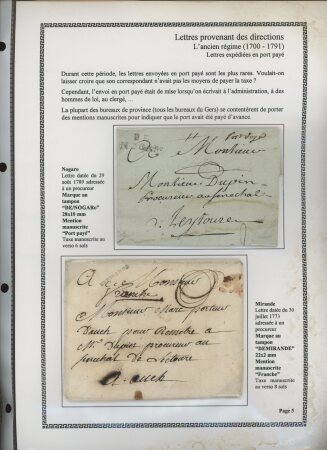 Lettres provenant des directions
L'ancien régime (1700 - 1791)
Lettres expédiées en port payé
Durant cette période, les lettres envoyées en port payé sont les plus rares. Voulait-on
laisser croire que son correspondant n'avait pas les moyens de payer la taxe ?
Cependant, l'envoi en port payé était de mise lorsqu'on écrivait à l'administration, à des
hommes de loi, au clergé, ...
La plupart des bureaux de province (tous les bureaux du Gers) se contentèrent de porter
des mentions manuscrites pour indiquer que le port avait été payé d'avance.
Nogaro
Lettre datée du 29
août 1789 adressée à
un procureur
Marque au
tampon
"DE/NOGARo"
28x10 mm
Mention
manuscrite
"Port payé"
Taxe manuscrite au
verso 6 sols
Port payé
A Monsieur
Monsieur Dupin
procureur au senechal
A Monsieur
franche
Monsieur
dauch pour Remettre a
procureur au
a auch
Mirande
Lettre datée du 30
juillet 1773
adressée à un
procureur
Marque au
tampon
"DEMIRANDE"
22x2 mm
Mention
manuscrite
"Franche"
Taxe manuscrite
au verso 8 sols
Page 5